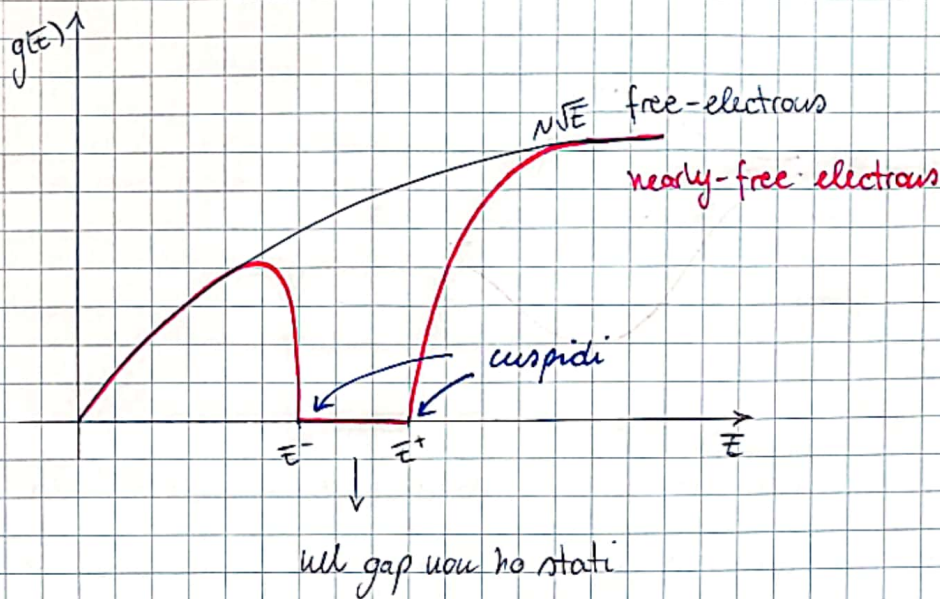 g(E)
~√E free-electrons
nearly-free electrons
cuspidi
E⁻ E⁺ E
nel gap non ho stati